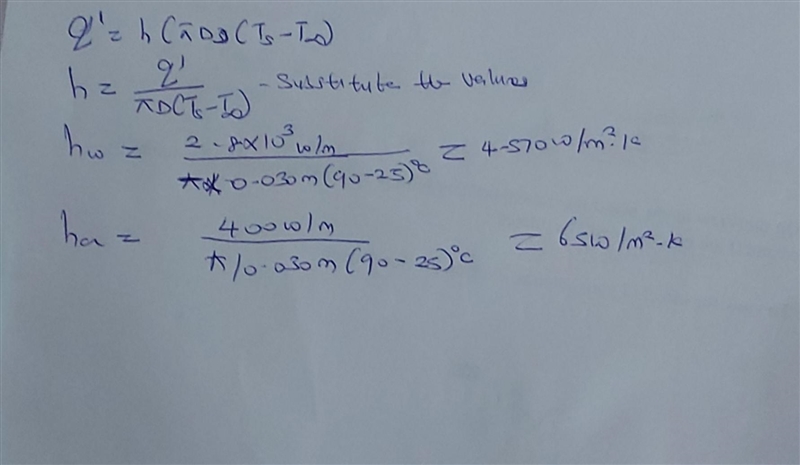 q' = h (πD)(Ts - T∞)
h = q' / πD(Ts - T∞) - Substitute the values
hw = 2.8×10³ w/m / π × 0.030m (90-25)°c = 4570 w/m².k
ha = 400 w/m / π/0.030m (90-25)°c = 65 w/m².k